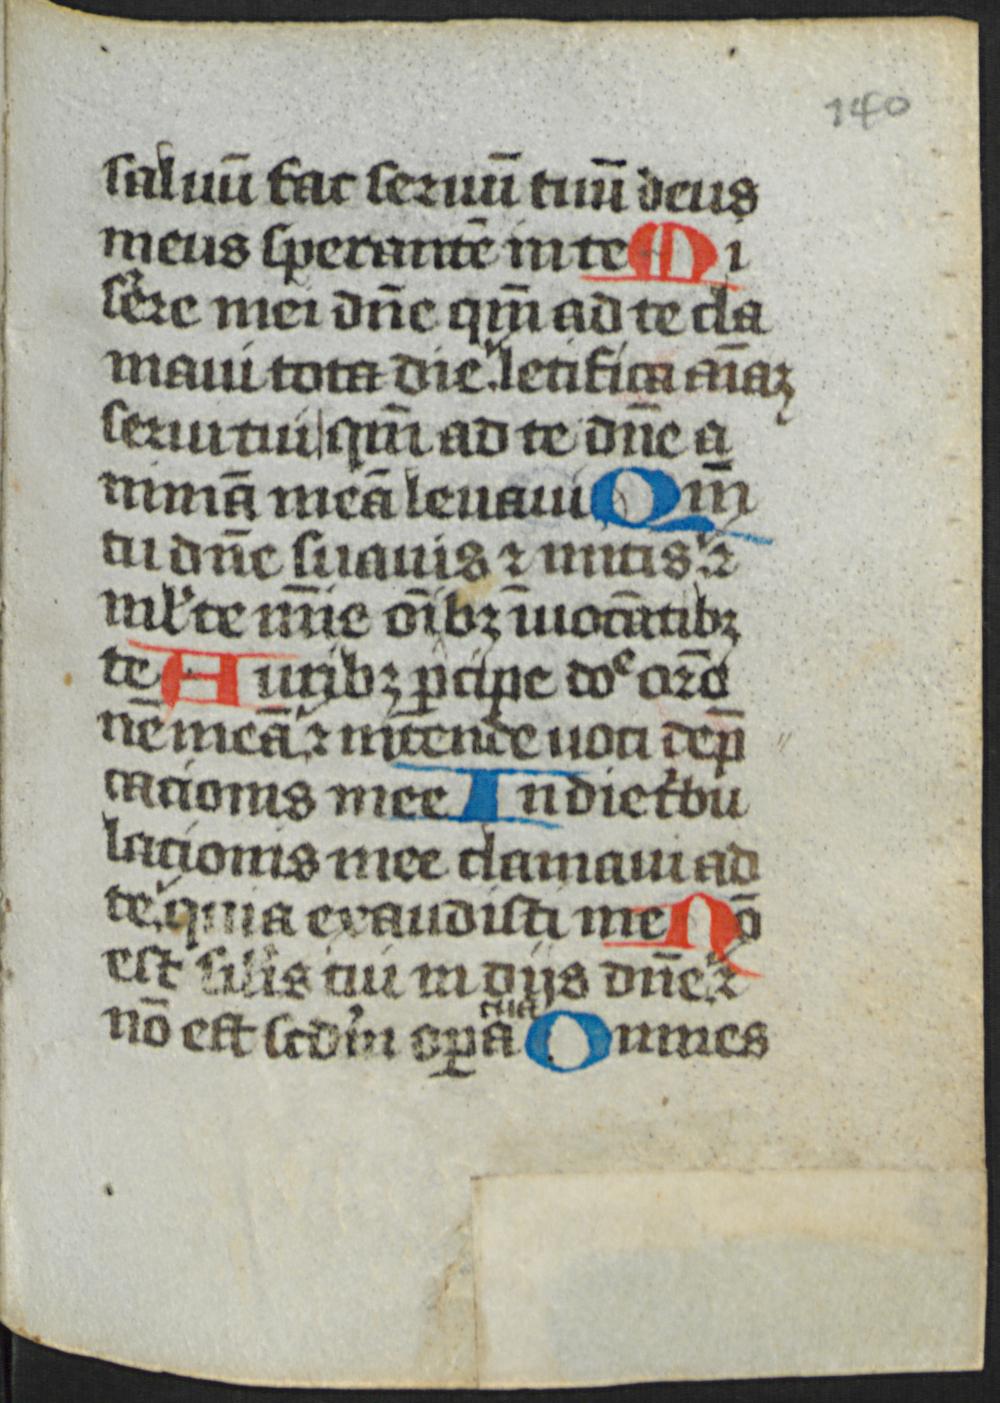 140
saluū fac seruū tuū deus
meus sperantē in te Mi
sere mei dn̄e qm̄ ad te cla
maui tota die letifica aīaꝫ
serui tui qm̄ ad te dn̄e a
nimā meā leuaui Qm̄
tu dn̄e suauis ⁊ mitis ⁊
ml̕te mīe oībꝫ īuocātibꝫ
te Auribꝫ p̄cipe doͤ orō
nē meā ⁊ intende uoci dep̄
cacionis mee In die t'bu
lacionis mee clamaui ad
te quia exaudisti me Nō
est sil̕is tui in dijs dn̄e ⁊
nō est scd'm oꝑa tua Omnes